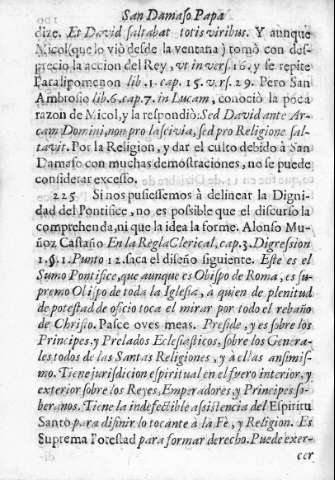 San Damaso Papa
dize. Et David saltabat totis viribus. Y aunque
Micol (que lo viò desde la ventana) tomò con des-
precio la accion del Rey, vt in vers. 16. y se repite
Paralipomenon lib. 1. cap. 15. v.rs. 29. Pero San
Ambrosio lib. 6. cap. 7. in Lucam, conociò la poca
razon de Micol, y la respondiò: Sed David ante Ar-
cam Domini, non pro lascivia, sed pro Religione sal-
tavit. Por la Religion, y dar el culto debido à San
Damaso con muchas demostraciones, no se puede
considerar excesso.
225 Si nos pusiessemos à delinear la Digni-
dad del Pontifice, no es possible que el discurso la
comprehenda, ni que la idea la forme. Alonso Mu-
ñoz Castaño En la Regla Clerical, cap. 3. Digression
1. §. 1. Punto 12. saca el diseño siguiente. Este es el
Sumo Pontifice, que aunque es Obispo de Roma, es su-
premo Obispo de toda la Iglesia, à quien de plenitud
de potestad de oficio toca el mirar por todo el rebaño
de Christo. Pasce oves meas. Preside, y es sobre los
Principes, y Prelados Eclesiasticos, sobre los Genera-
les todos de las Santas Religiones, y à ellas ansimis-
mo. Tiene jurisdicion espiritual en el fuero interior, y
exterior sobre los Reyes, Emperadores, y Principes so-
beranos. Tiene la indefectible assistencia del Espiritu
Santo para difinir lo tocante à la Fè, y Religion. Es
Suprema Potestad para formar derecho. Puede exer-
cer